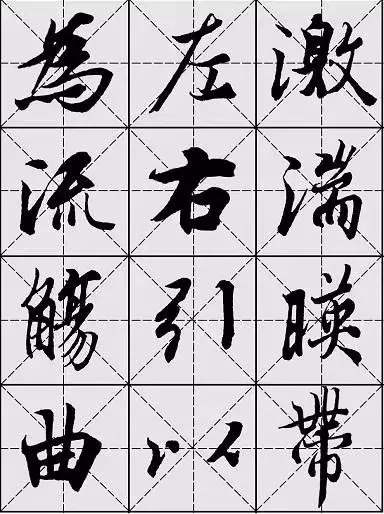 激湍暎帶
左右引以
為流觴曲